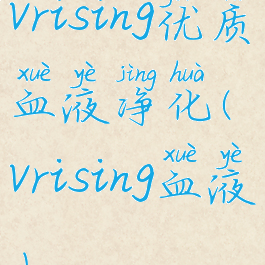 vrising优质
xuè yè jìng huà
血液净化(
xuè yè
vrising血液